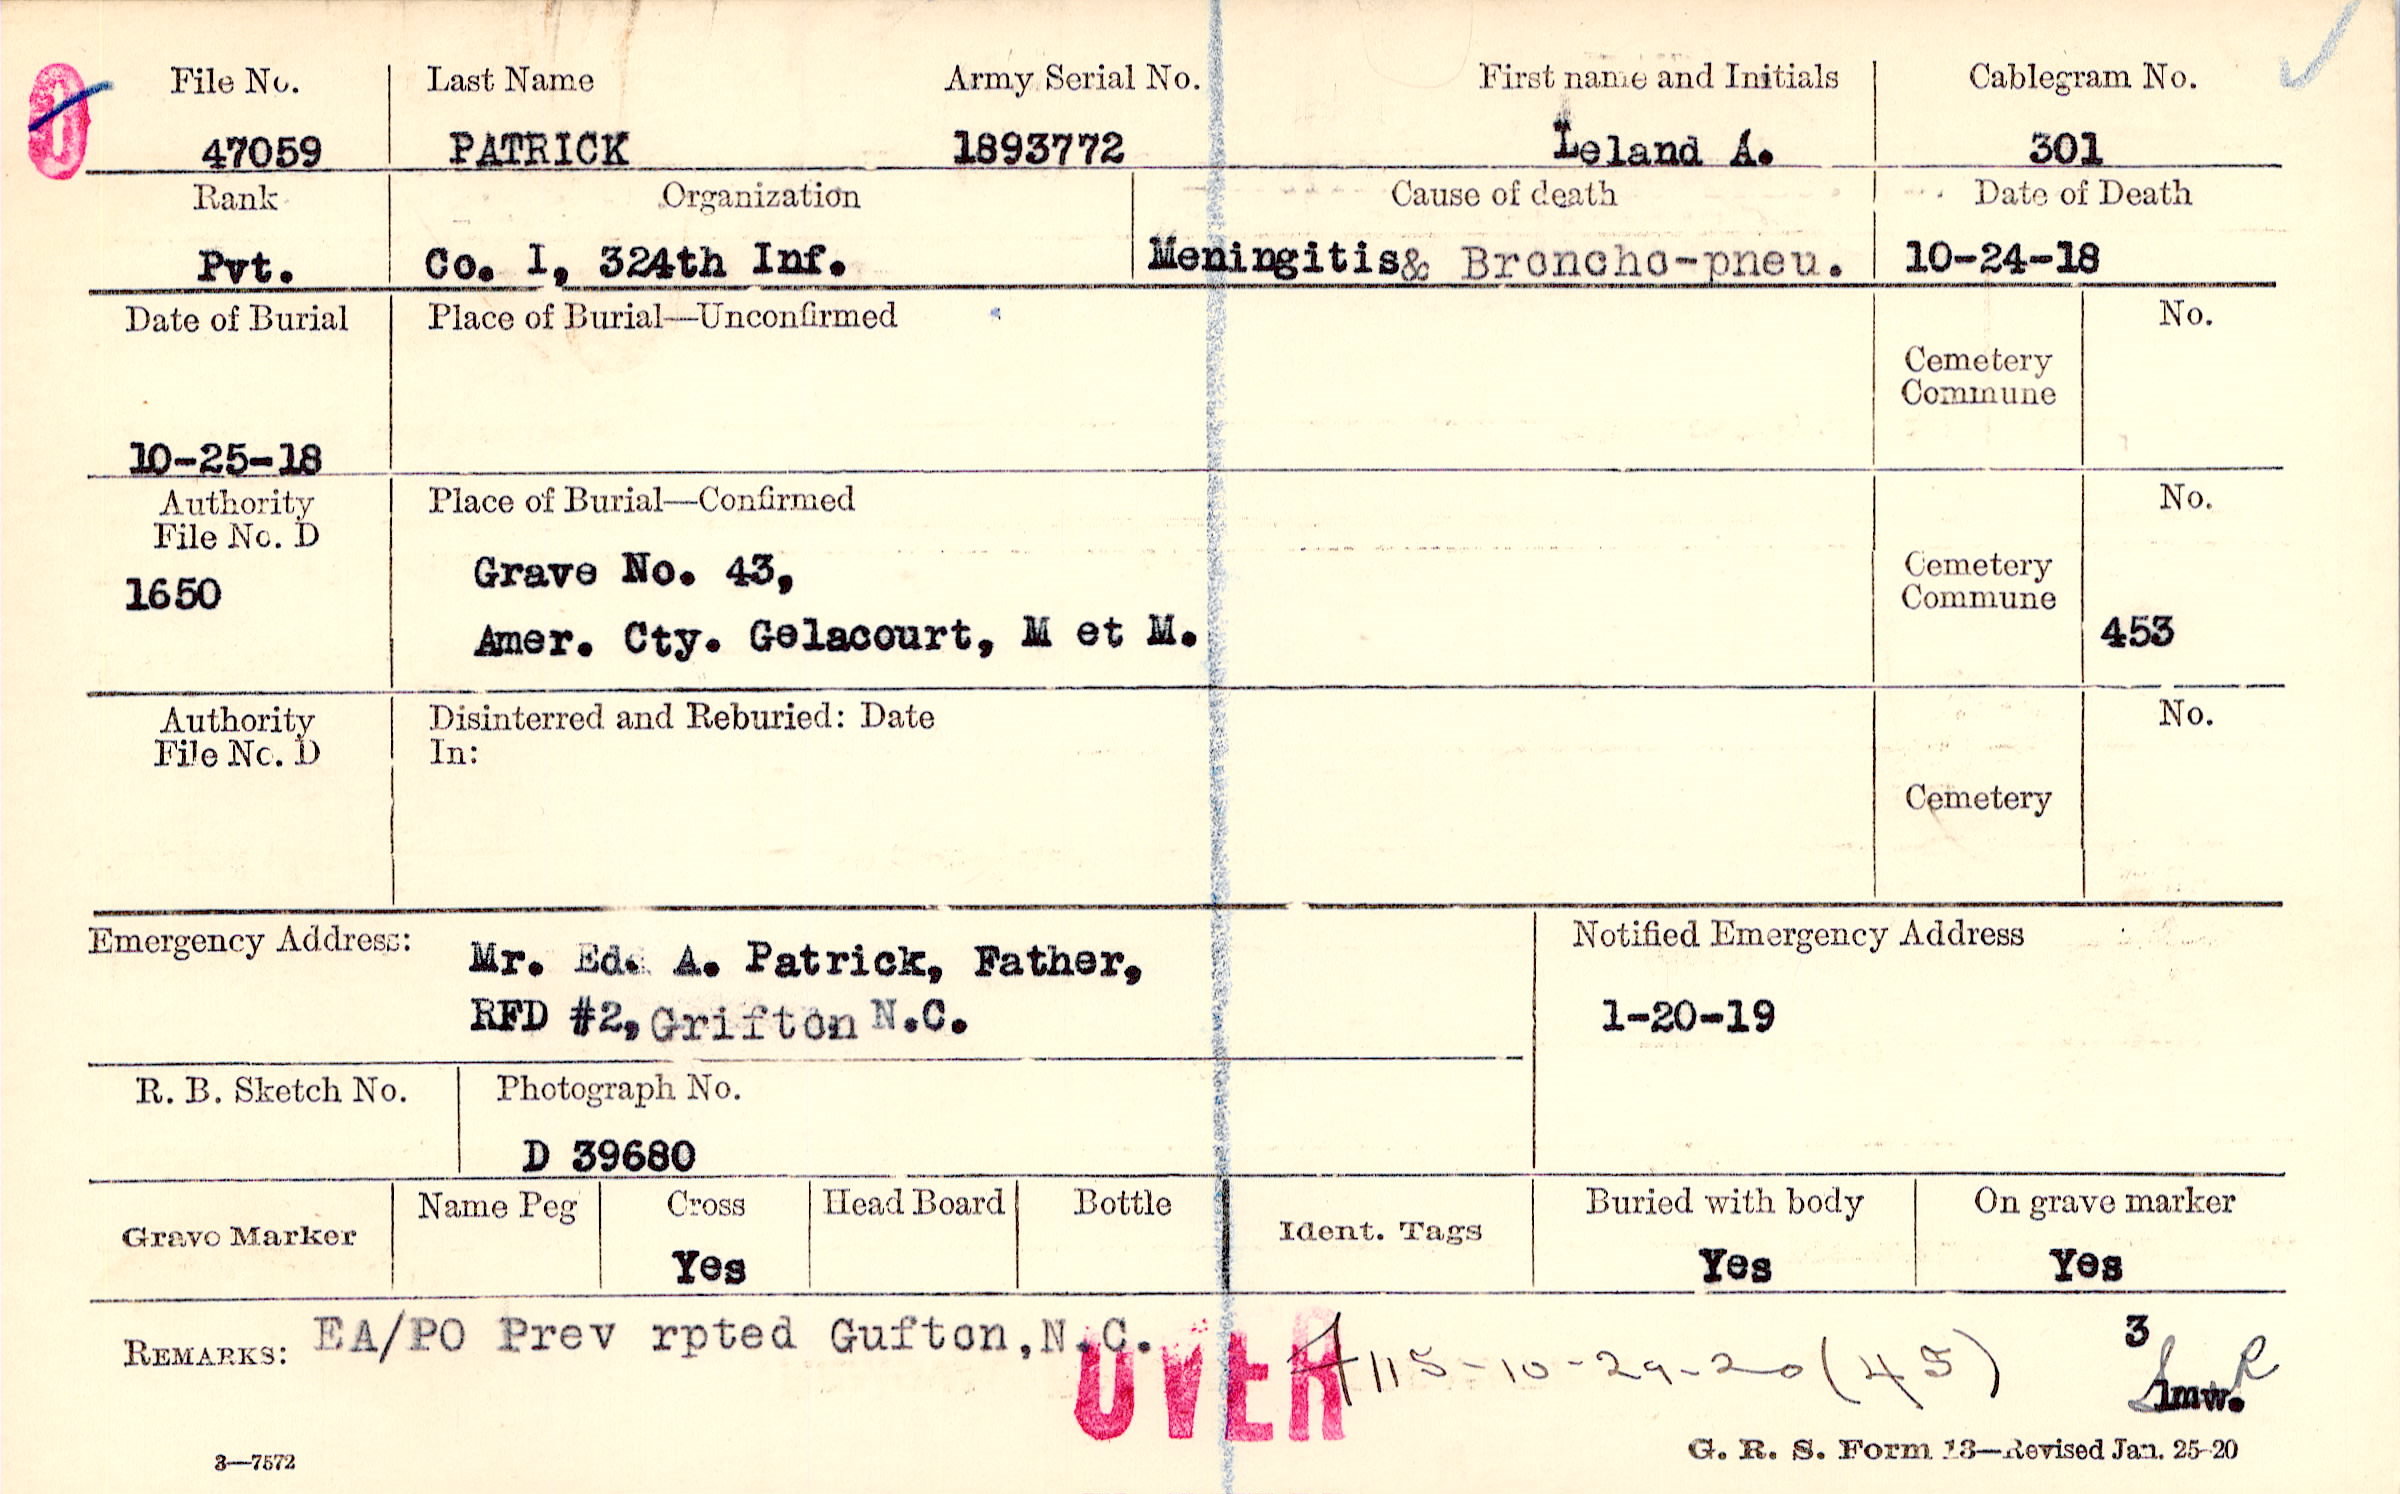 0
File No.
Last Name
Army Serial No.
First name and Initials
Cablegram No.
47059
PATRICK
1893772
Leland A.
301
Rank
Organization
Cause of death
Date of Death
Pvt.
Co. I, 324th Inf.
Meningitis& Broncho-pneu.
10-24-18
Date of Burial
Place of Burial—Unconfirmed
No.
Cemetery
Commune
10-25-18
Authority
File No. D
Place of Burial—Confirmed
No.
1650
Grave No. 43,
Amer. Cty. Gelacourt, M et M.
Cemetery
Commune
453
Authority
File No. D
Disinterred and Reburied: Date
In:
No.
Cemetery
Emergency Address:
Mr. Ed. A. Patrick, Father,
RFD #2, Grifton N.C.
Notified Emergency Address
1-20-19
R. B. Sketch No.
Photograph No.
D 39680
Grave Marker
Name Peg
Cross
Yes
Head Board
Bottle
Ident. Tags
Buried with body
Yes
On grave marker
Yes
REMARKS: EA/PO Prev rpted Gufton,N.C.
OVER
115-10-29-20 (45)
3
lmw.
3—7572
G. R. S. Form 13—Revised Jan. 25-20